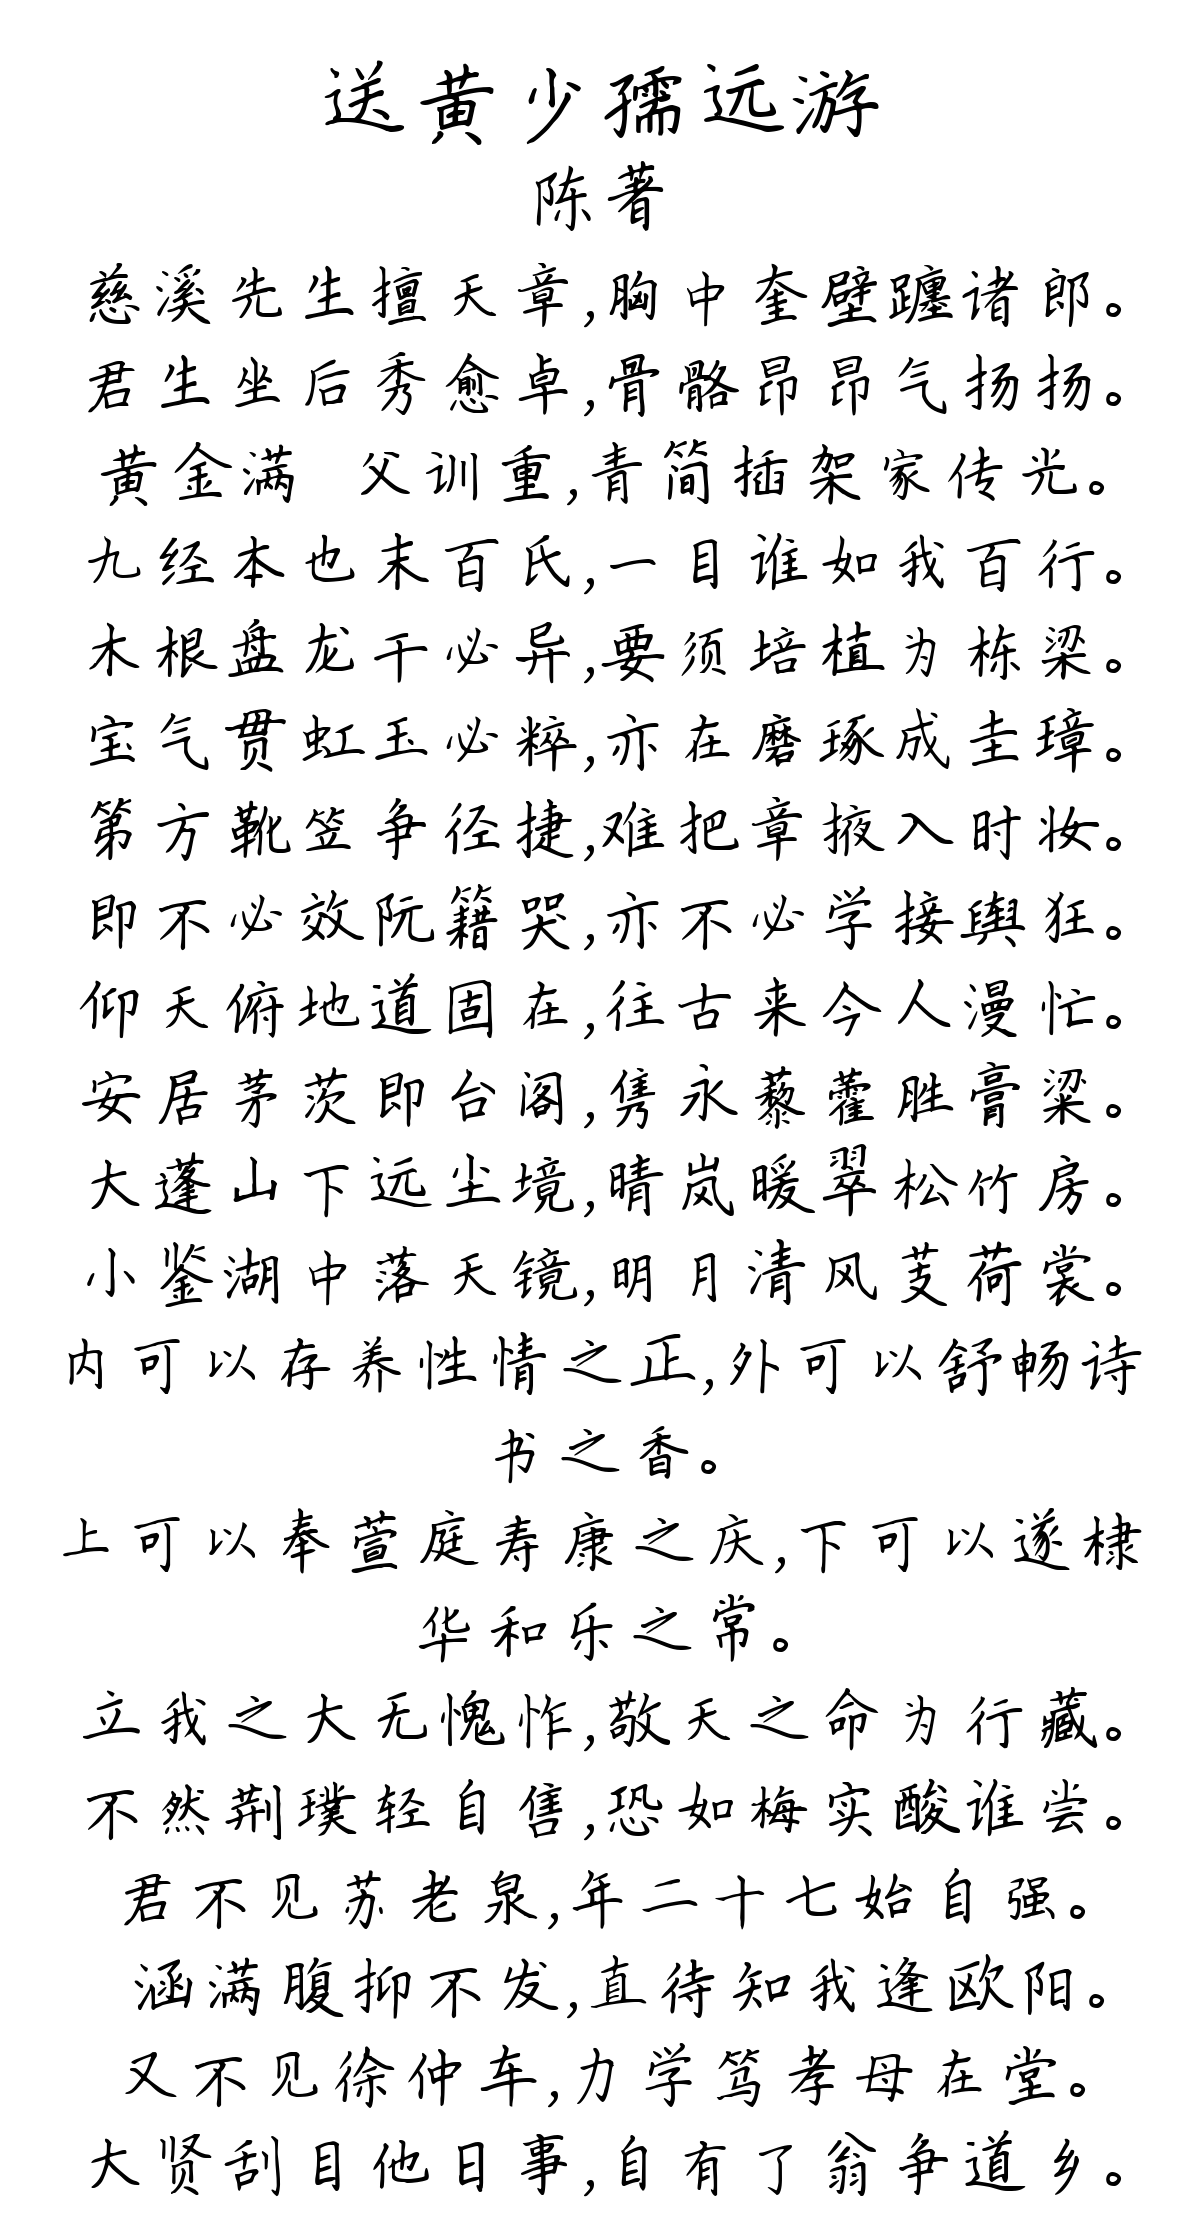 送黄少孺远游
陈著
慈溪先生擅天章,胸中奎壁躔诸郎。
君生坐后秀愈卓,骨骼昂昂气扬扬。
黄金满 父训重,青简插架家传光。
九经本也末百氏,一目谁如我百行。
木根盘龙干必异,要须培植为栋梁。
宝气贯虹玉必粹,亦在磨琢成圭璋。
第方靴笠争径捷,难把章掖入时妆。
即不必效阮籍哭,亦不必学接舆狂。
仰天俯地道固在,往古来今人漫忙。
安居茅茨即台阁,隽永藜藿胜膏粱。
大蓬山下远尘境,晴岚暖翠松竹房。
小鉴湖中落天镜,明月清风芰荷裳。
内可以存养性情之正,外可以舒畅诗
书之香。
上可以奉萱庭寿康之庆,下可以遂棣
华和乐之常。
立我之大无愧怍,敬天之命为行藏。
不然荆璞轻自售,恐如梅实酸谁尝。
君不见苏老泉,年二十七始自强。
涵满腹抑不发,直待知我逢欧阳。
又不见徐仲车,力学笃孝母在堂。
大贤刮目他日事,自有了翁争道乡。